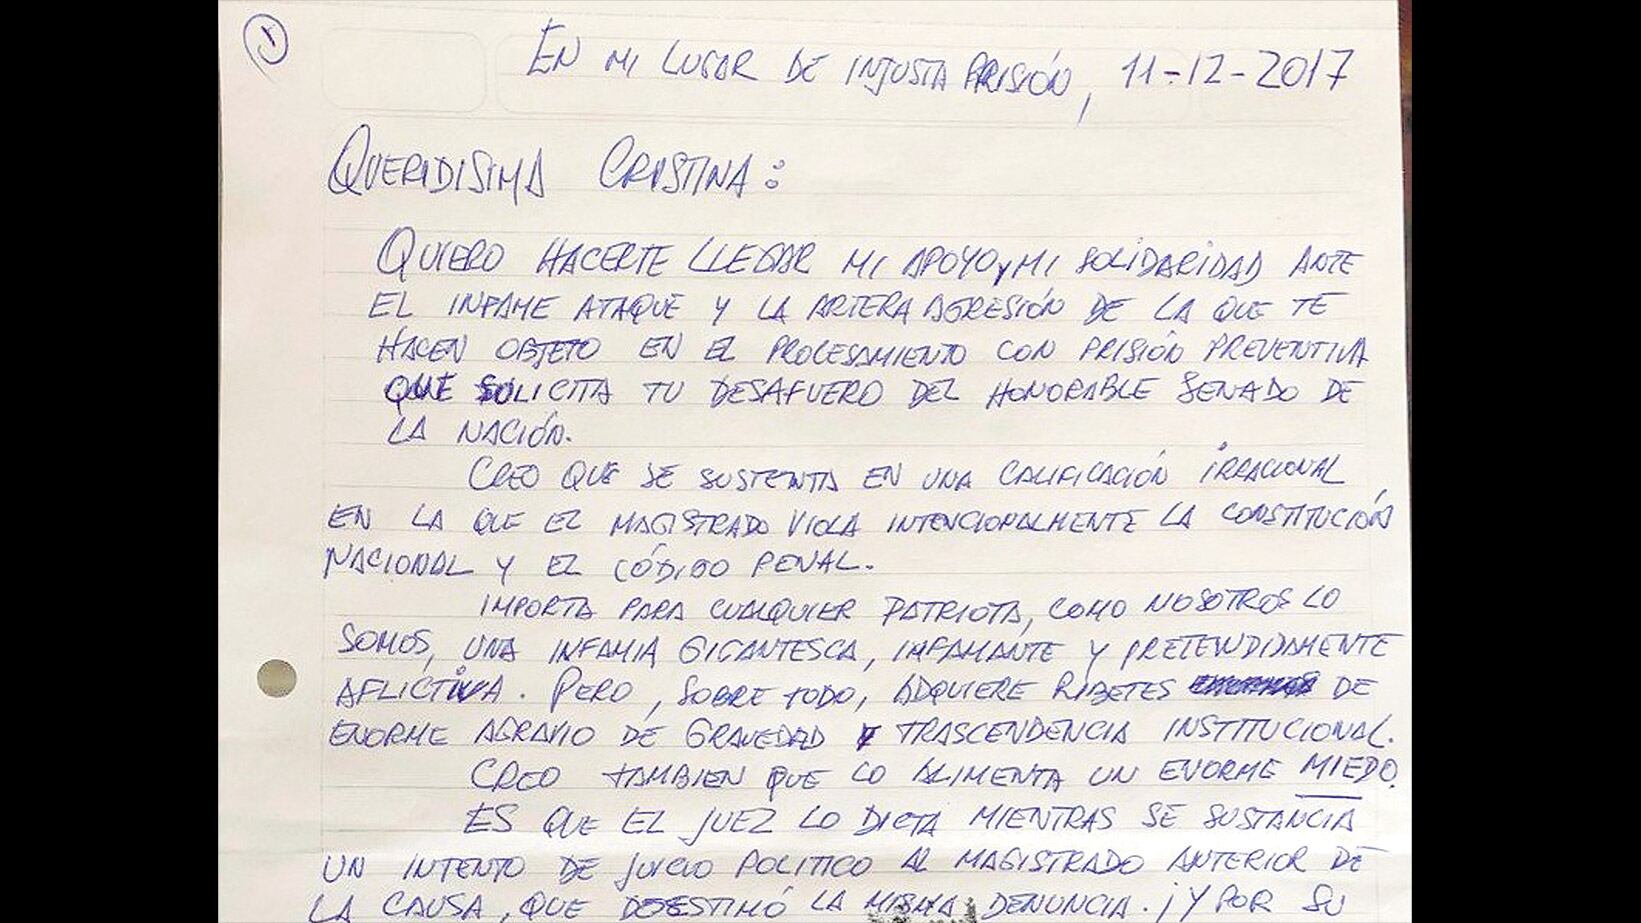 1
EN MI LUGAR DE INJUSTA PRISIÓN, 11-12-2017
QUERIDISIMA CRISTINA:
QUIERO HACERTE LLEGAR MI APOYO Y MI SOLIDARIDAD ANTE
EL INFAME ATAQUE Y LA ARTERA AGRESIÓN DE LA QUE TE
HACEN OBJETO EN EL PROCESAMIENTO CON PRISIÓN PREVENTIVA
QUE SOLICITA TU DESAFUERO DEL HONORABLE SENADO DE
LA NACIÓN.
CREO QUE SE SUSTENTA EN UNA CALIFICACIÓN IRRACIONAL
EN LA QUE EL MAGISTRADO VIOLA INTENCIONALMENTE LA CONSTITUCIÓN
NACIONAL Y EL CÓDIGO PENAL.
IMPORTA PARA CUALQUIER PATRIOTA, COMO NOSOTROS LO
SOMOS, UNA INFAMIA GIGANTESCA, INFAMANTE Y PRETENDIDAMENTE
AFLICTIVA. PERO, SOBRE TODO, ADQUIERE RIBETES DE
ENORME AGRAVIO DE GRAVEDAD Y TRASCENDENCIA INSTITUCIONAL.
CREO TAMBIEN QUE LO ALIMENTA UN ENORME MIEDO.
ES QUE EL JUEZ LO DICTA MIENTRAS SE SUSTANCIA
UN INTENTO DE JUICIO POLITICO AL MAGISTRADO ANTERIOR DE
LA CAUSA, QUE DESESTIMÓ LA MISMA DENUNCIA. ¡Y POR SU